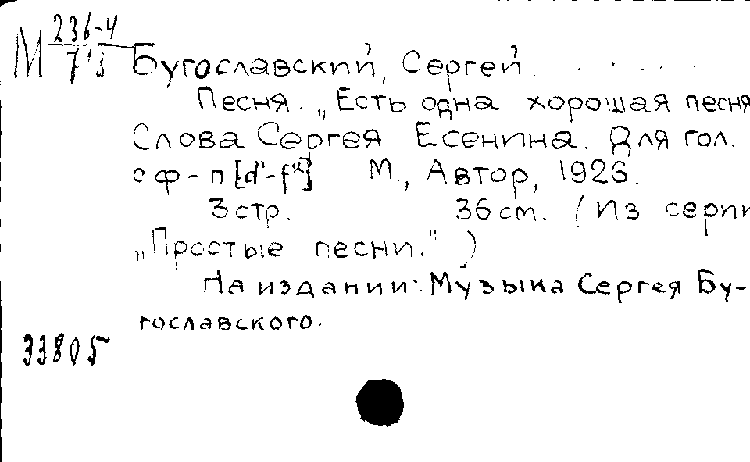 М 236-4
7'3
Бугославский, Сергей . . . . . .
Песня. „Есть одна хорошая песня
Слова Сергея Есенина. Для гол.
с ф-п [d'-f"] М., Автор, 1926.
3 стр. 36 см. (Из серии
„Простые песни.")
На издании: Музыка Сергея Бу-
гославского.
33805